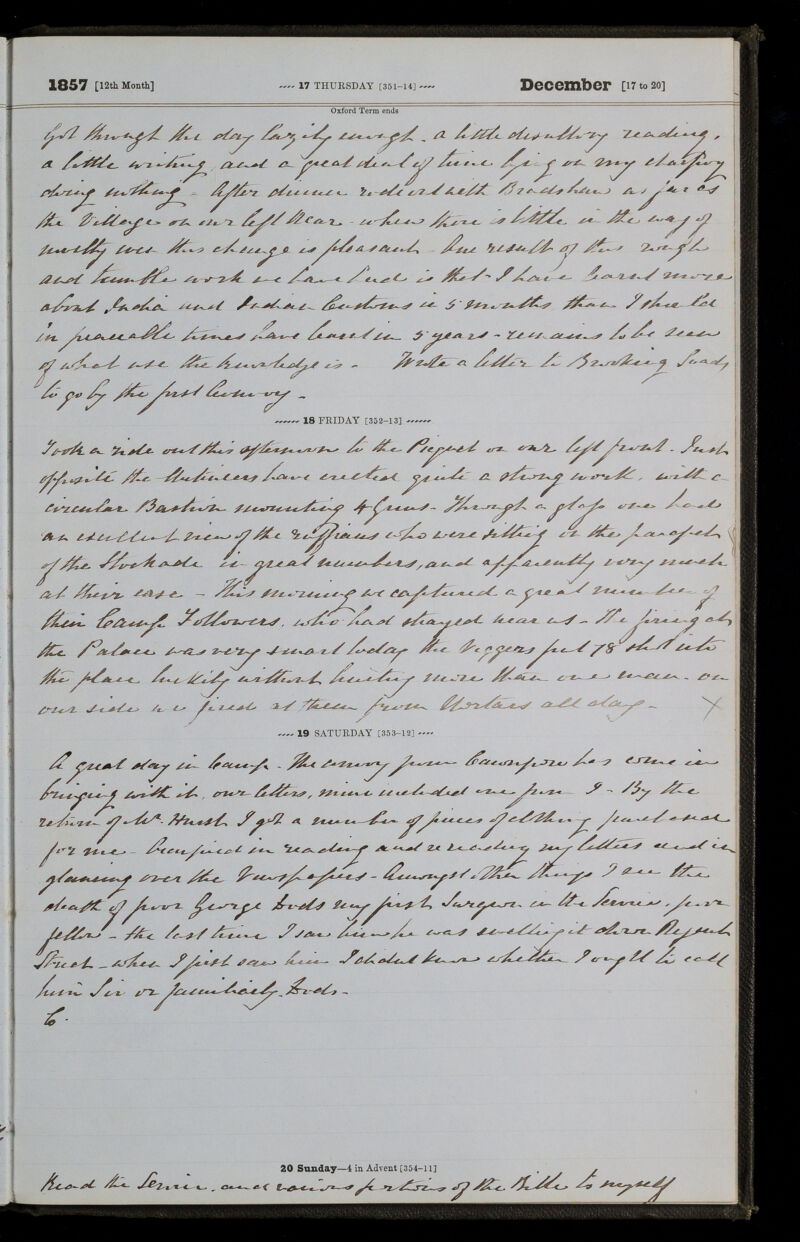 1857 [12th Month] ---- 17 THURSDAY [351-14] ---- December [17 to 20]
Oxford Term ends
Got through the day lazily enough - a little desultory reading,
a little writing, and a great deal of time lying on my charpoy
doing nothing - After dinner rode out with Bradshaw as far as
the Village on our left Rear - when there is little in the way of
novelty even this change is pleasant - One result of this rough
and tumble work we have had is that I have learnt more
about India and Indian Customs in 5 months than I should
in peaceable times have learnt in 5 years - remains to be seen
of what use the knowledge is - Wrote a letter to Brooking
to go by the first Convoy -
------ 18 FRIDAY [352-13] ------
Took a ride out this afternoon to the Picquet on our left front. Just
opposite the Mutineers have erected quite a strong work, with a
circular Bastion mounting 4 Guns - Through a glass one had
an excellent view of the ruffians who were sitting on the parapet
of the Stockade in great numbers, and apparently very much
at their ease - This morning we captured a great number of
their Camp Followers, who had strayed near us - The firing at
the Palace was very smart today the put 78 shot into
the place luckily without hurting more than one man - on
our side we fired at them from Mortars all day -
---- 19 SATURDAY [353-12] ----
A great day in Camp - The convoy from Cawnpore has come in
bringing with it, our letters, mine included one from - By the
return of Mr. Hurst I got a number of pieces of clothing purchased
for me - Occupied in reading and rereading my letters and in
glancing over the Newspapers - Amongst other things I see the
death of poor George Dods my first Surgeon in the Service, poor
fellow - the last time I saw him he was swelling it down Regent
Street - when I first saw him I didnt know whether I ought to call
him Sir or familiarly Dods -
C.
20 Sunday—4 in Advent [354-11]
Read the Service, and various portions of the Bible to myself